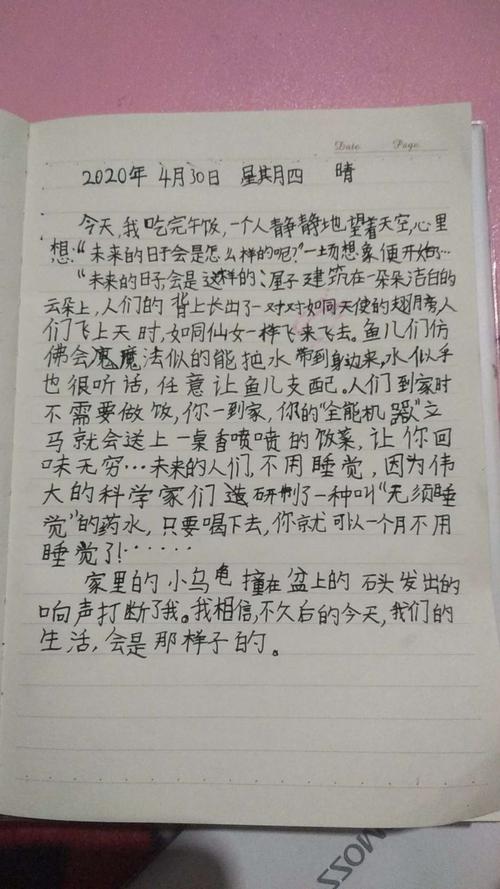 Date Page
2020年 4月30日 星期四 晴
今天,我吃完午饭,一个人静静地望着天空,心里
想:“未来的日子会是怎么样的呢?”一场想象便开始了…
“未来的日子会是这样的:屋子建筑在一朵朵洁白的
云朵上,人们的背上长出了一对对如同天使的翅膀,人
们飞上天时,如同仙女一样飞来飞去。鱼儿们仿
佛会魔法似的能把水带到身边来,水似乎
也很听话,任意让鱼儿支配。人们到家时
不需要做饭,你一到家,你的“全能机器”立
马就会送上一桌香喷喷的饭菜,让你回
味无穷…未来的人们,不用睡觉,因为伟
大的科学家们研制了一种叫“无须睡
觉”的药水,只要喝下去,你就可以一个月不用
睡觉了!······
家里的小乌龟撞在盆上的石头发出的
响声打断了我。我相信,不久后的今天,我们的
生活,会是那样子的。
MOZZ